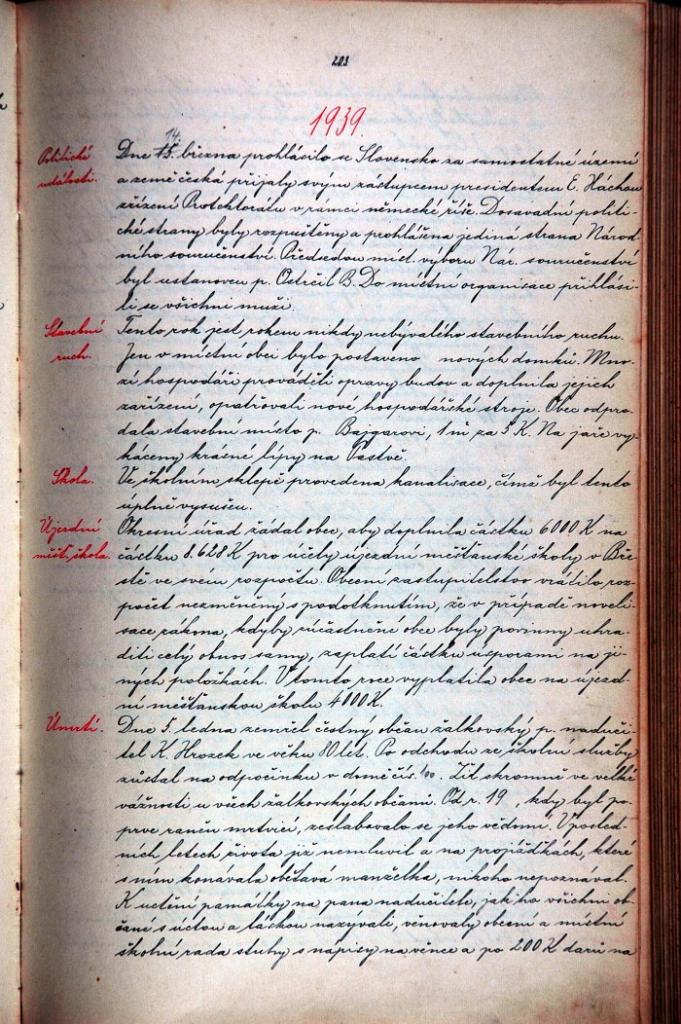 203
1939.
14.
Politické Dne 15. března prohlásilo se Slovensko za samostatné území
události. a země česká přijaly svým zástupcem presidentem E. Háchou
zřízení Protektorátu v rámci německé říše. Dosavadní politi-
cké strany byly rozpuštěny a prohlášena jediná strana Národ-
ního souručenství. Předsedou míst. výboru Nár. souručenství
byl ustanoven p. Ostrčil B. Do místní organisace přihlási-
li se všichni muži.
Stavební Tento rok jest rokem nikdy nebývalého stavebního ruchu.
ruch. Jen v místní obci bylo postaveno nových domků. Mno-
zí hospodáři prováděli opravy budov a doplnila jejich
zařízení, opatřovali nové hospodářské stroje. Obec odpro-
dala stavební místo p. Bajgarovi, 1 m² za 5 K. Na jaře vy-
káceny krásné lípy na Pastvě.
Škola. Ve školním sklepě provedena kanalisace, čímž byl tento
úplně vysušen.
Újezdní Okresní úřad žádal obec, aby doplnila částku 6000 K na
měšť. škola. částku 8.628 K pro účely újezdní měšťanské školy v Bře-
stě ve svém rozpočtu. Obecní zastupitelstvo vrátilo roz-
počet nezměněný s podotknutím, že v případě noveli-
sace zákona, kdyby zúčastněné obce byly povinny uhra-
diti celý obnos samy, zaplatí částku úsporami na ji-
ných položkách. V tomto roce vyplatila obec na újezd-
ní měšťanskou školu 4000 K.
Úmrtí. Dne 5. ledna zemřel čestný občan žalkovský p. nadučí-
tel K. Hrozek ve věku 80 let. Po odchodu ze školní služby
zůstal na odpočinku v domě čís. 100. Žil skromně ve velké
vážnosti u všech žalkovských občanů. Od r. 19 , kdy byl po-
prve raněn mrtvicí, zeslabovalo se jeho vědomí. V posled-
ních letech života již nemluvil a na projížďkách, které
s ním konávala obětavá manželka, nikoho nepoznával.
K uctění památky na pana nadučitele, jak ho všichni ob-
čané s úctou a láskou nazývali, věnovaly obecní a místní
školní rada stuhy s nápisy na věnce a po 200 K darů na